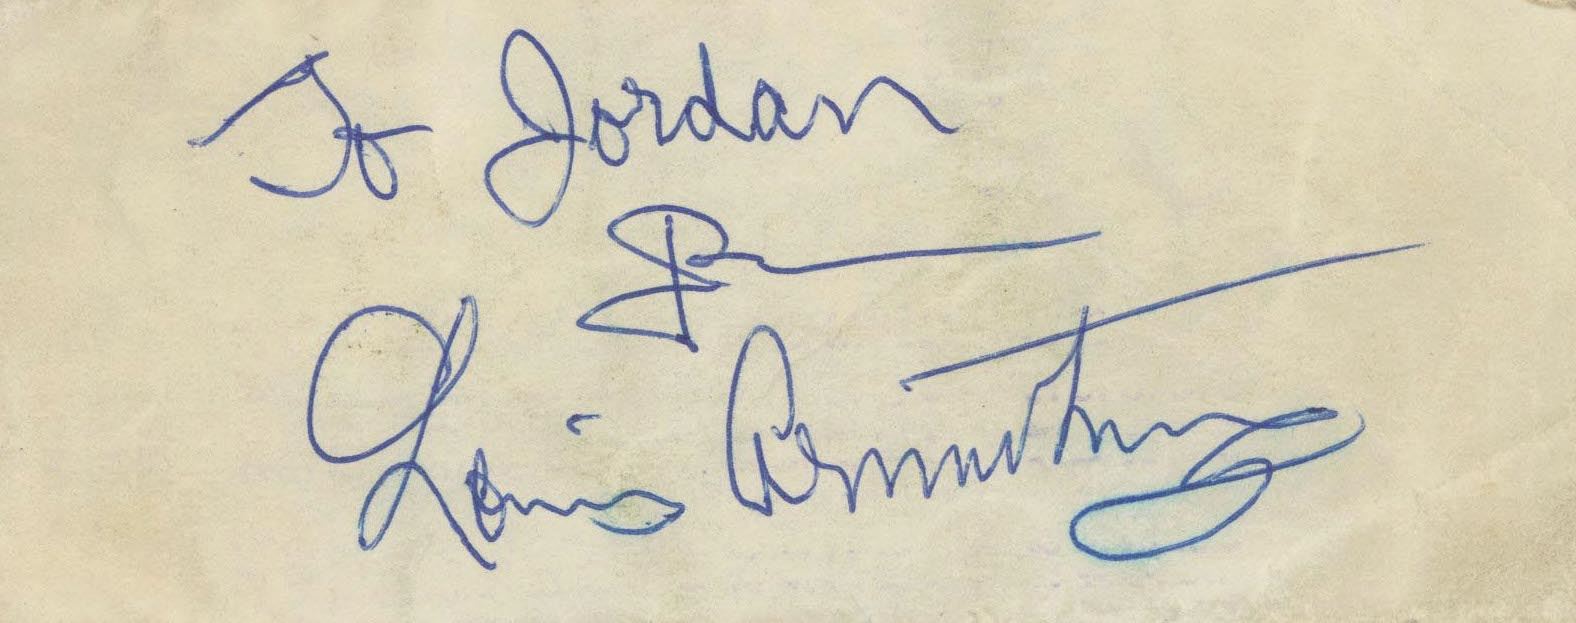 To Jordan
Louis Armstrong